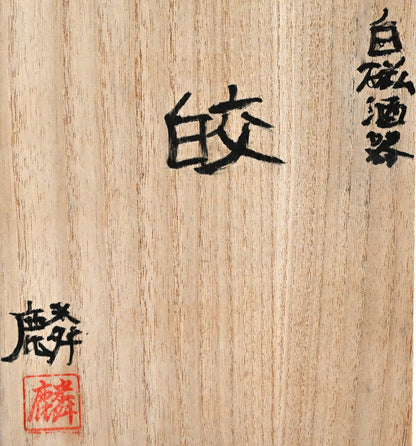 白磁酒器
皎
麟
麟